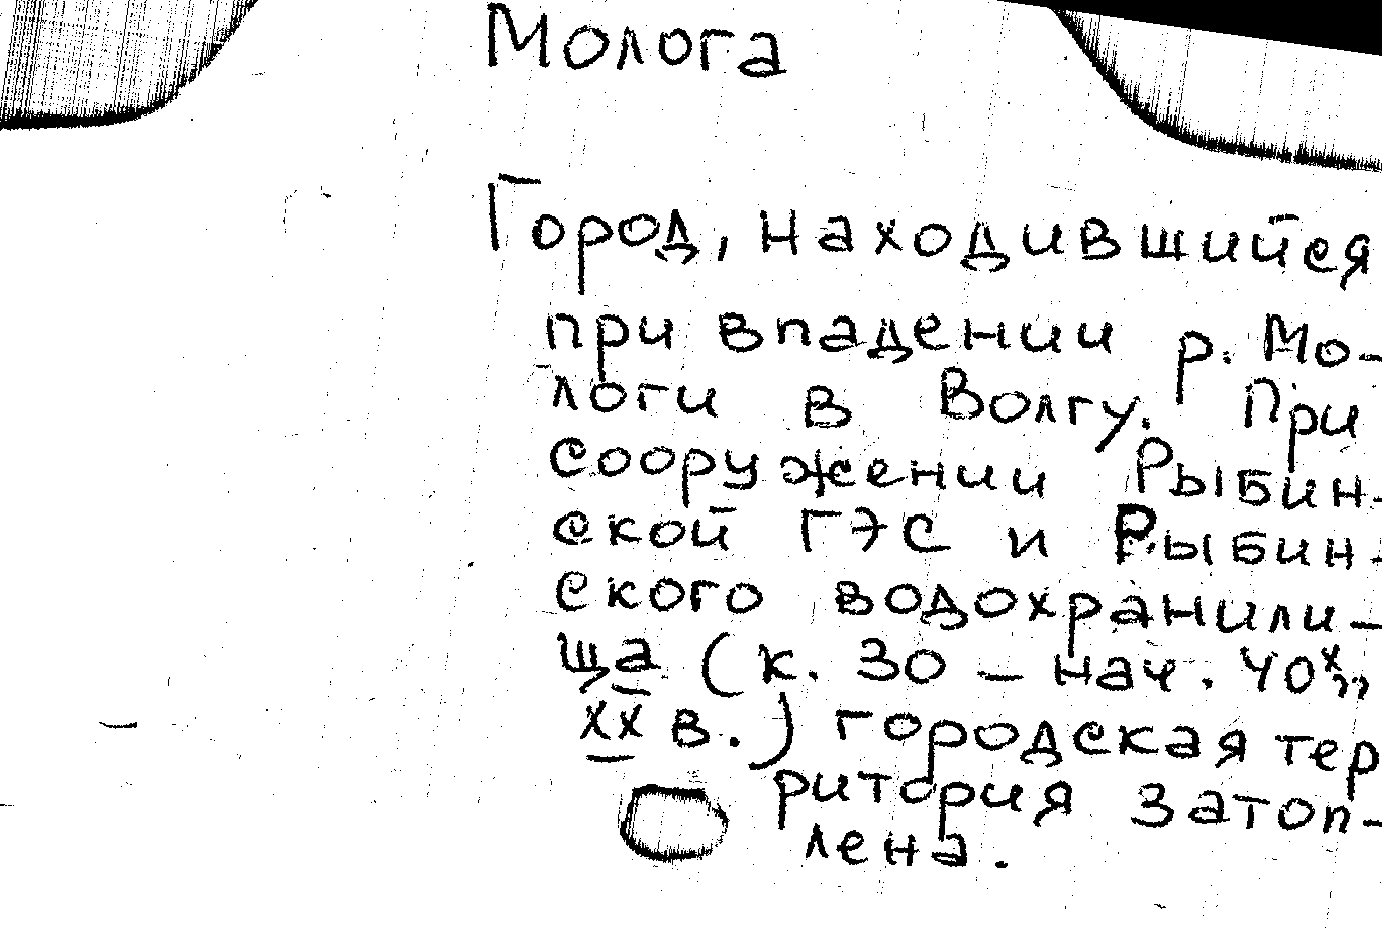 Молога
Город, находившийся
при впадении р. Мо-
логи в Волгу. При
сооружении Рыбин-
ской ГЭС и Рыбин-
ского водохранили-
ща (к. 30 - нач. 40х,,
XX в.) городская тер
ритория затоп-
лена.